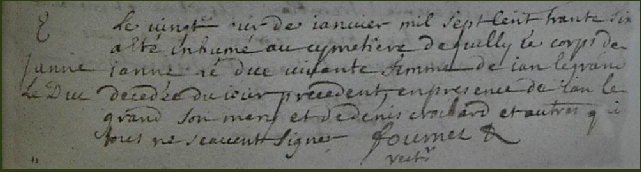 Le vingt six de janvier mil sept cent trante six
a été inhumé au cymetière de quilly le corps de
Janne janne le duc vivante femme de jan le grand
Le Duc decedée du jour précédent, en presence de jan le
grand son mary et de denis crochard et autres qui
tous ne scavent signer fournier
rectr